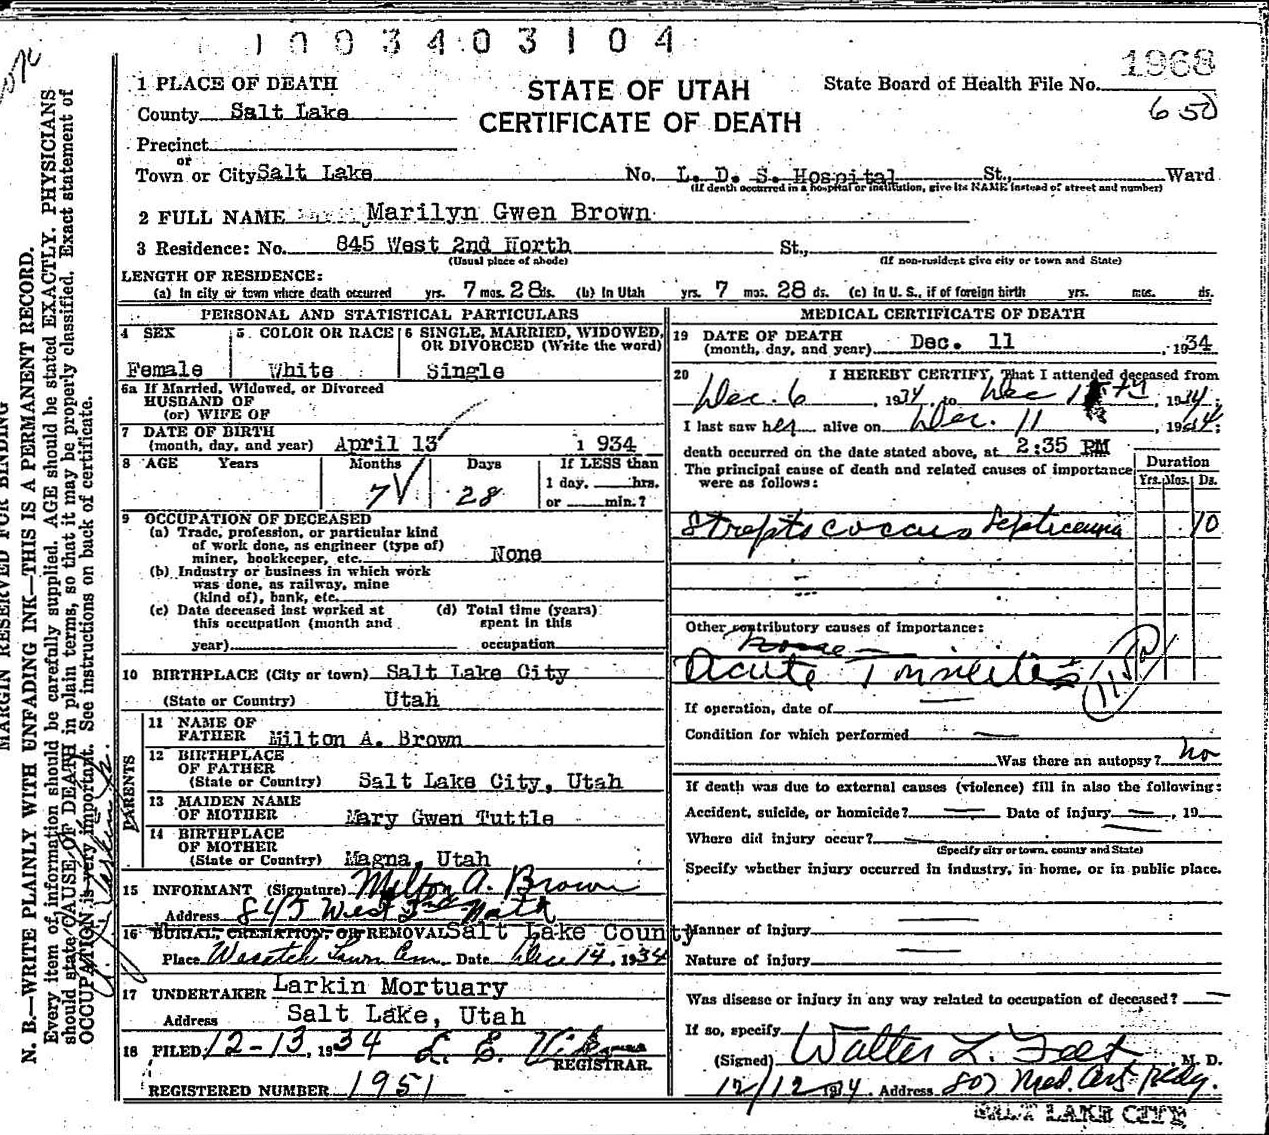 1003403104
1968
650
1 PLACE OF DEATH
STATE OF UTAH
CERTIFICATE OF DEATH
State Board of Health File No.
County Salt Lake
Precinct
or
Town or City Salt Lake No. L. D. S. Hospital St., Ward
(If death occurred in a hospital or institution, give its NAME instead of street and number)
2 FULL NAME Marilyn Gwen Brown
3 Residence: No. 845 West 2nd North St.,
(Usual place of abode) (If non-resident give city or town and State)
LENGTH OF RESIDENCE:
(a) In city or town where death occurred yrs. 7 mos. 28 ds. (b) In Utah yrs. 7 mos. 28 ds. (c) In U. S., if of foreign birth yrs. mos. ds.
PERSONAL AND STATISTICAL PARTICULARS
4 SEX
Female
5 COLOR OR RACE
White
6 SINGLE, MARRIED, WIDOWED, OR DIVORCED (Write the word)
Single
6a If Married, Widowed, or Divorced
HUSBAND OF
(or) WIFE OF
7 DATE OF BIRTH
(month, day, and year) April 13 1934
8 AGE Years Months Days If LESS than
7 28 1 day, hrs.
or min.?
9 OCCUPATION OF DECEASED
(a) Trade, profession, or particular kind
of work done, as engineer (type of)
miner, bookkeeper, etc. None
(b) Industry or business in which work
was done, as railway, mine
(kind of), bank, etc.
(c) Date deceased last worked at
this occupation (month and
year)
(d) Total time (years)
spent in this
occupation
10 BIRTHPLACE (City or town) Salt Lake City
(State or Country) Utah
PARENTS
11 NAME OF
FATHER Milton A. Brown
12 BIRTHPLACE
OF FATHER
(State or Country) Salt Lake City, Utah
13 MAIDEN NAME
OF MOTHER Mary Gwen Tuttle
14 BIRTHPLACE
OF MOTHER
(State or Country) Magna, Utah
15 INFORMANT (Signature) Milton A. Brown
Address 845 West 2nd North
16 BURIAL, CREMATION, OR REMOVAL Salt Lake County
Place Wasatch Lawn Cem. Date Dec 14, 1934
17 UNDERTAKER Larkin Mortuary
Address Salt Lake, Utah
18 FILED 12-13, 1934 L. E.
REGISTRAR.
REGISTERED NUMBER 1951
MEDICAL CERTIFICATE OF DEATH
19 DATE OF DEATH
(month, day, and year) Dec. 11, 1934
20 I HEREBY CERTIFY, That I attended deceased from
Dec. 6, 1934, to Dec 11th, 1934;
I last saw her alive on Dec. 11, 1934;
death occurred on the date stated above, at 2:35 PM
The principal cause of death and related causes of importance
were as follows:
Duration
Yrs. Mos. Ds.
Streptococcus Septicemia 10
Other contributory causes of importance:
None
Acute Tonsilitis
If operation, date of
Condition for which performed
Was there an autopsy? No
If death was due to external causes (violence) fill in also the following:
Accident, suicide, or homicide? Date of injury, 19
Where did injury occur?
(Specify city or town, county and State)
Specify whether injury occurred in industry, in home, or in public place.
Manner of injury
Nature of injury
Was disease or injury in any way related to occupation of deceased?
If so, specify
(Signed) Walter L. , M. D.
12/12 1934. Address 807 Med. Arts Bldg.
SALT LAKE CITY
MARGIN RESERVED FOR BINDING
N. B.—WRITE PLAINLY WITH UNFADING INK—THIS IS A PERMANENT RECORD.
Every item of information should be carefully supplied. AGE should be stated EXACTLY. PHYSICIANS
should state CAUSE OF DEATH in plain terms, so that it may be properly classified. Exact statement of
OCCUPATION is very important. See instructions on back of certificate.